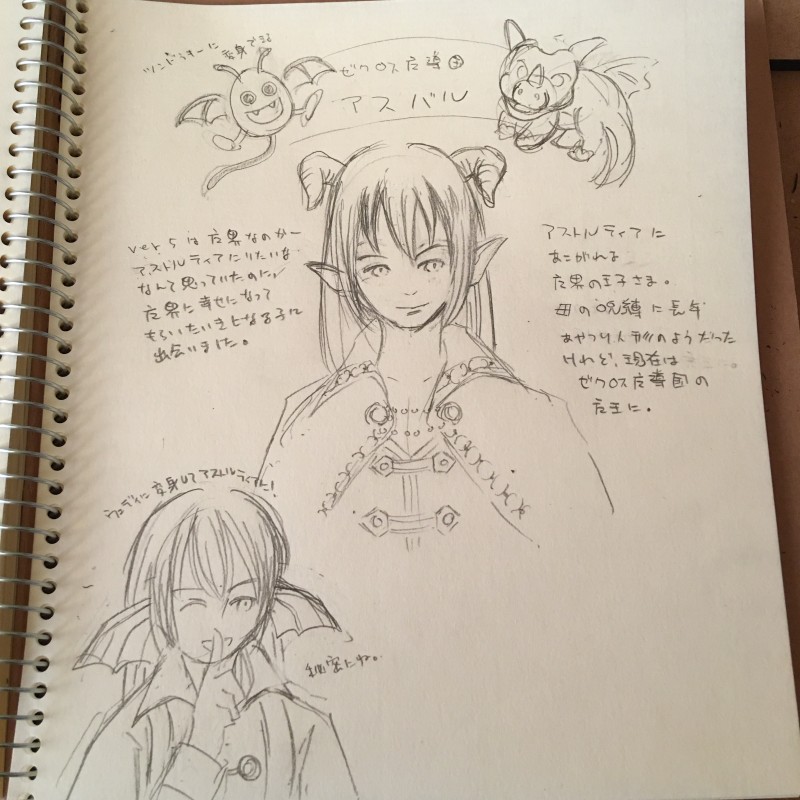 ツンドラキーに変身できる
ゼクロス广導国
アスバル
ver 5 は 广界なのかー
アストルティアにいたいな
なんて思っていたのに、
广界に幸せになって
もらいたいきになる子に
出会いました。
アストルティアに
あこがれる
广界の王子さま。
母の呪縛に長年
あやつり人形のようだった
けれど、現在は
ゼクロス广導国の
广王に。
ウェディに変身してアストルティアに!
秘密にね。